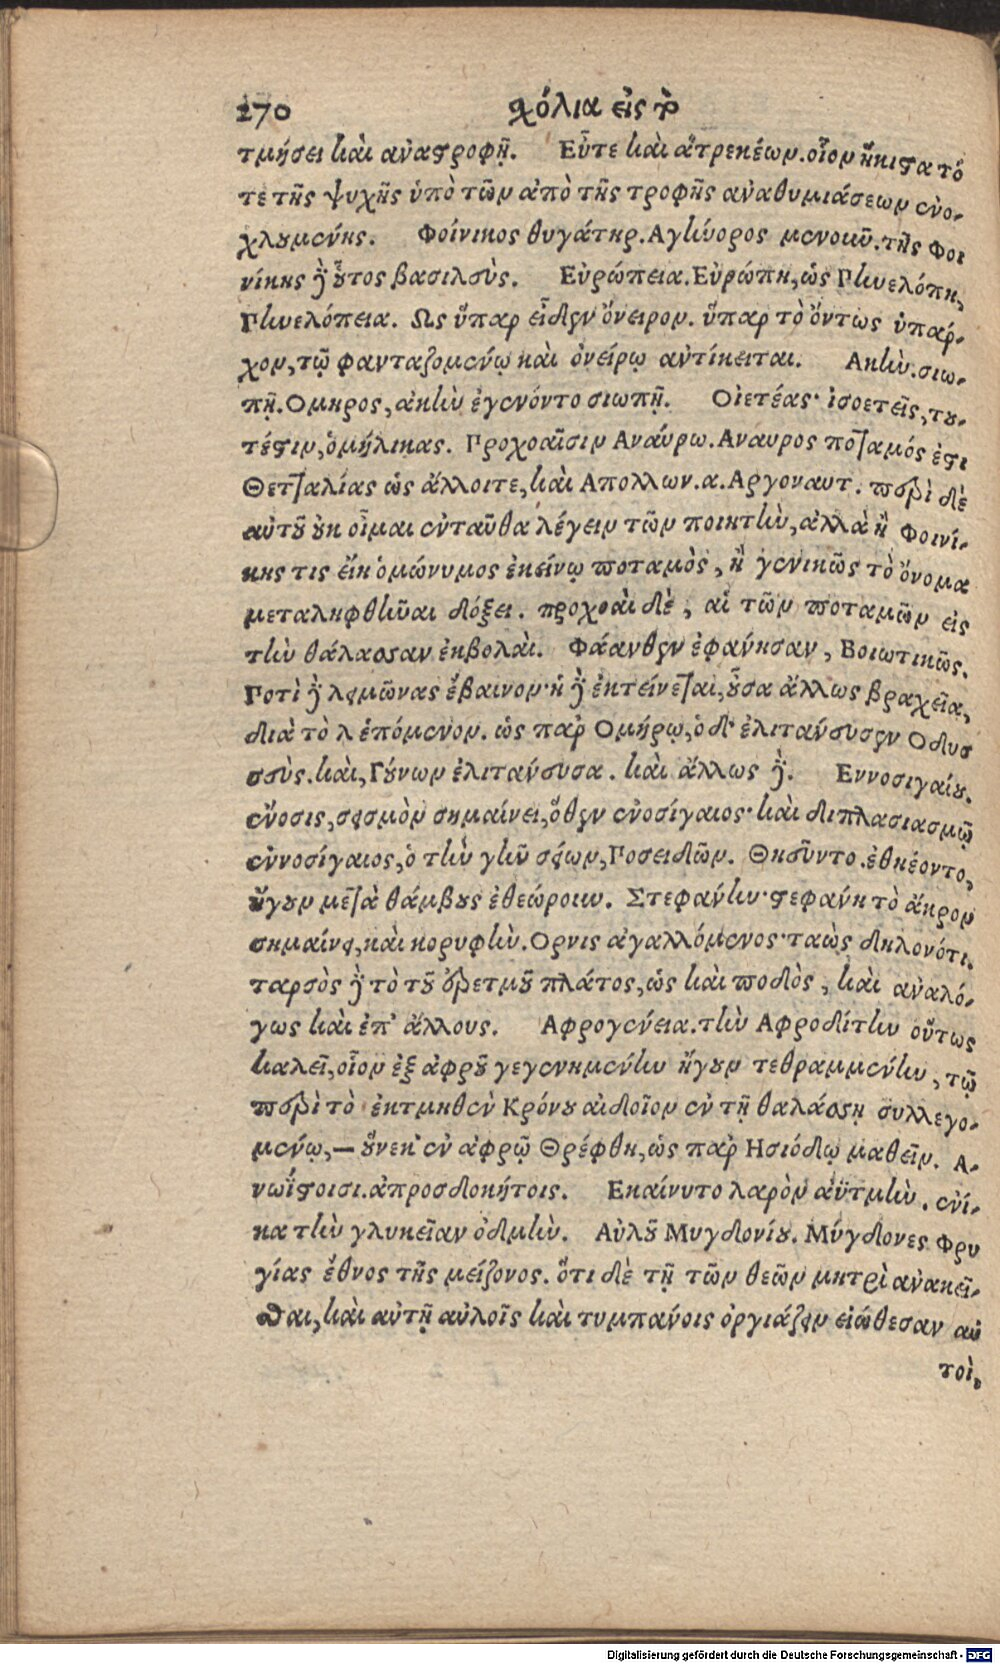 270 χόλια εἰς τ̀
τμήσει καὶ ἀναστροφῇ. Εὖτε καὶ ἀτρεκέων. οἷον ἥκιστα τό
τε τῆς ψυχῆς ὑπὸ τῶν ἀπὸ τῆς τροφῆς ἀναθυμιάσεων ἐνο-
χλουμένης. Φοίνικος θυγάτηρ. Αγήνορος μενοιῦ. τῆς Φοι
νίκης γὰρ οὗτος βασιλεύς. Εὐρώπεια. Εὐρώπη, ὡς Πηνελόπη,
Πηνελόπεια. Ως ὕπαρ εἶδεν ὄνειρον. ὕπαρ τὸ ὄντως ὑπάρ-
χον, τῷ φανταζομένῳ καὶ ὀνείρῳ ἀντίκειται. Ακήν. σιω-
πῇ. Ομηρος, ἀκὴν ἐγένοντο σιωπῇ. Οἰετέας· ἰσοετεῖς, του-
τέστιν, ὁμήλικας. Προχοαῖσιν Αναύρω. Αναυρος ποταμός ἐστι
Θετταλίας ὡς ἄλλοιτε, καὶ Απολλων. α. Αργοναυτ. περὶ δὲ
αὐτοῦ οὐκ οἶμαι ἐνταῦθα λέγειν τῶν ποιητὴν, ἀλλὰ ἢ Φοινί-
κης τις εἴη ὁμώνυμος ἐκείνῳ ποταμὸς, ἢ γενικῶς τὸ ὄνομα
μεταληφθῆναι δόξει. προχοαὶ δὲ, αἱ τῶν ποταμῶν εἰς
τὴν θάλασσαν ἐκβολαὶ. Φάανθεν ἐφανήσαν, Βοιωτικῶς.
Ποτὶ γὰρ λειμῶνας ἔβαινον· ἡ γὰρ ἐκτείνεται, οὖσα ἄλλως βραχεῖα,
διὰ τὸ λ ἑπόμενον. ὡς παρ Ομήρῳ, ὁ δ' ἐλιτανευσεν Οδυσ
σεὺς. καὶ, Γούνων ἐλιτανευσα. καὶ ἄλλως γάρ. Εννοσιγαίου.
ἔνοσις, σεισμὸν σημαίνει, ὅθεν ἐνοσίγαιος· καὶ διπλασιασμῷ
ἐννοσίγαιος, ὁ τὴν γῆν σείων, Ποσειδῶν. Θησῦντο. ἐθηέοντο,
ἤγουν μετὰ θάμβους ἐθεώρουν. Στεφάνην· στεφάνη τὸ ἄκρον
σημαίνει, καὶ κορυφὴν. Ορνις ἀγαλλόμενος· ταὼς δηλονότι.
ταρσὸς γὰρ τὸ τοῦ ὀρετμοῦ πλάτος, ὡς καὶ ποδὸς, καὶ ἀναλό-
γως καὶ ἐπ' ἄλλους. Αφρογένεια. τὴν Αφροδίτην οὕτως
καλεῖ, οἷον ἐξ ἀφροῦ γεγενημένην ἤγουν τεθραμμένην, τῷ
περὶ τὸ ἐκτμηθὲν Κρόνου αἰδοῖον ἐν τῇ θαλάσσῃ συλλεγο-
μένῳ, — οὕνεκ' ἐν ἀφρῷ Θρέφθη, ὡς παρ Ησιόδῳ μαθεῖν. Α-
νωΐστοισι. ἀπροσδοκήτοις. Εκαίνυτο λαρὸν ἀϋτμὴν. ἐνί-
κα τὴν γλυκεῖαν ὀδμὴν. Αὐλοῦ Μυγδονίου. Μύγδονες Φρυ
γίας ἔθνος τῆς μείζονος. ὅτι δὲ τῇ τῶν θεῶν μητρὶ ἀνακεῖ-
σθαι, καὶ αὐτῇ αὐλοῖς καὶ τυμπάνοις ὀργιάζειν εἰώθεσαν αὐ
τοὶ,
Digitalisierung gefördert durch die Deutsche Forschungsgemeinschaft - DFG